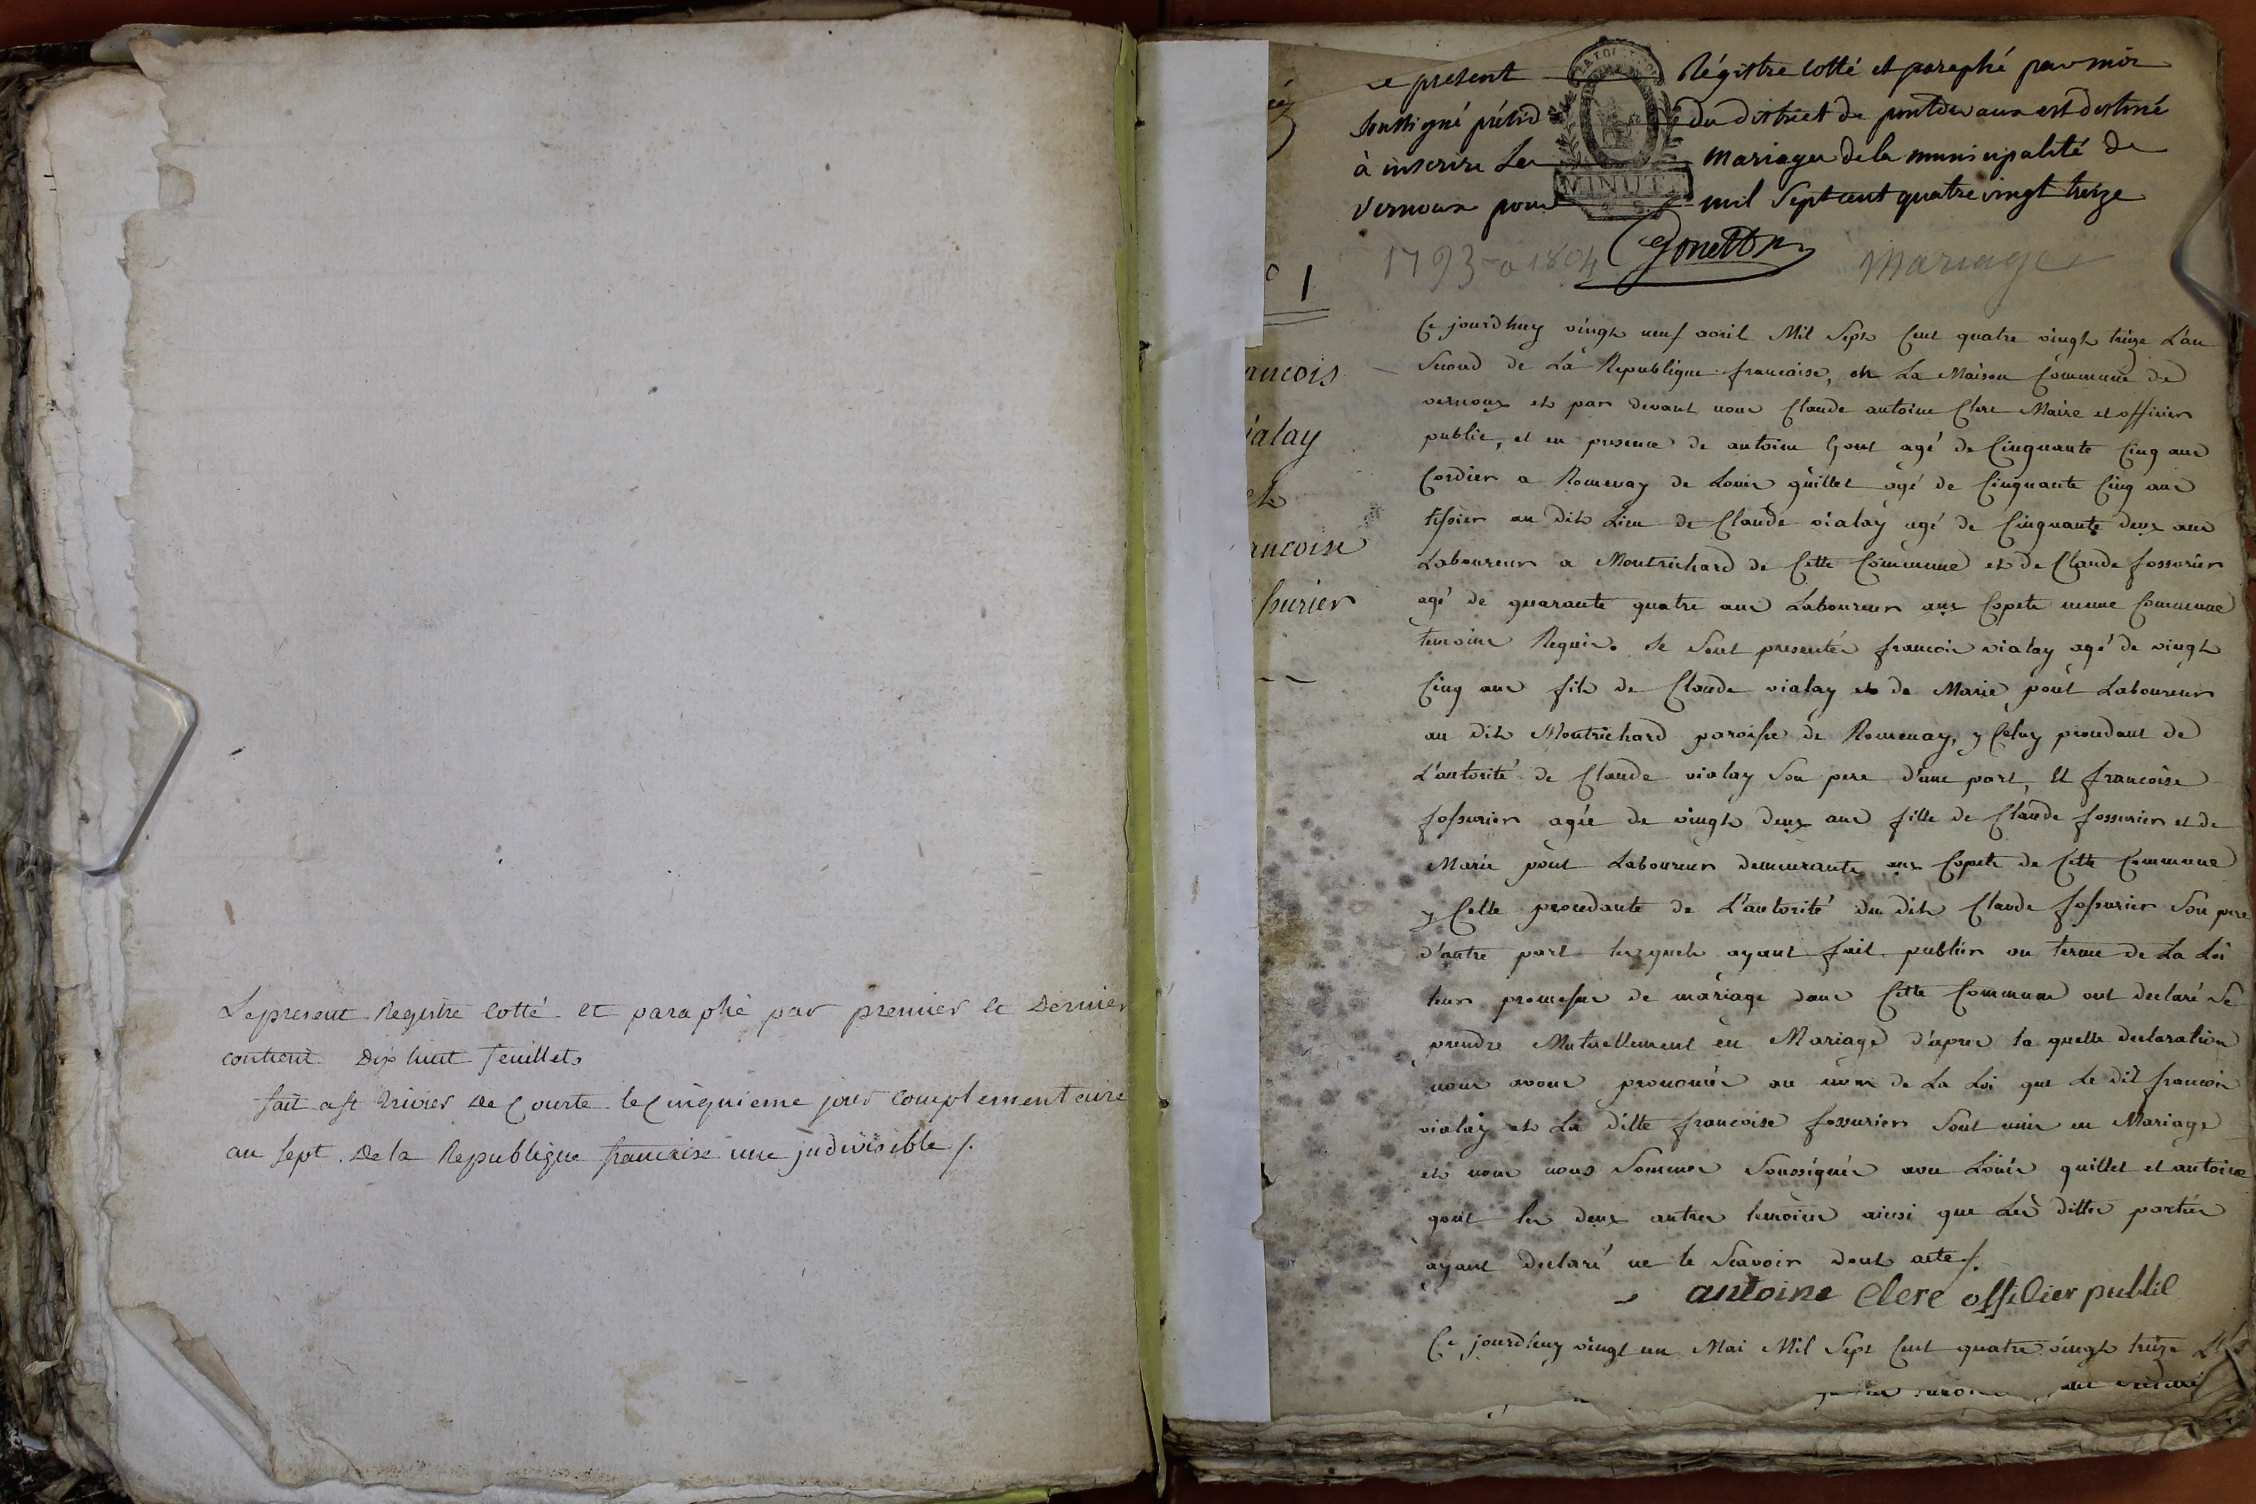 Le present Registre cotté et paraphé par premier et Dernier
contient Dix huit feuillets
fait a St Trivier De Courte le Cinquieme jour complementaire
an sept De la Republique francaise une jndivisible ./.
Le present Régistre cotté et paraphé par moi
soussigné présid du district de pontdevaux est destiné
à inscrire Les mariages de la municipalité de
Vernoux pour mil Sept cent quatre vingt treize
MINUT
1793 a 1804
Mariages
1
ancois
ialay
et
ancoise
ssurier
Ce jourdhuy vingt neuf avril Mil Sept Cent quatre vingt treize L'an
Second de La Republique francaise, en La Maison Commune de
vernoux et par devant nous Claude antoine Clere Maire et officier
public, et en presence de antoine Gout agé de Cinquante Cinq ans
Cordier a Romenay de Louis guillet agé de Cinquante Cinq ans
tissier au dit Lieu de Claude vialay agé de Cinquante deux ans
Laboureur a Montrichard de Cette Commune et de Claude fossurier
agé de quarante quatre ans Laboureur aux Copets meme Commune
temoins Requis. Se Sont presentés francois vialay agé de vingt
Cinq ans fils de Claude vialay et de Marie pout Laboureur
au dit Montrichard paroisse de Romenay, y Celuy procedant de
L'autorité de Claude vialay Son pere d'une part, Et francoise
fossurier agée de vingt deux ans fille de Claude fossurier et de
Marie pout Laboureur demeurante aux Copets de Cette Commune
y Celle procedante de L'autorité du dit Claude fossurier Son pere
d'autre part lesquels ayant fait publier au terme de La Loi
leur promesse de mariage dans Cette Commune ont declaré Se
prendre Mutuellement en Mariage d'apres la quelle declaration
nous avons prononcés au nom de La Loi que Le dit francois
vialay et La ditte francoise fossurier Sont unis en Mariage
et nous nous Sommes Soussignés avec Louis guillet et antoine
gout les deux autres temoins ainsi que Les dittes parties
ayant declaré ne le Scavoir dont acte ./.
antoine Clere officier public
Ce jourdhuy vingt un Mai Mil Sept Cent quatre vingt treize